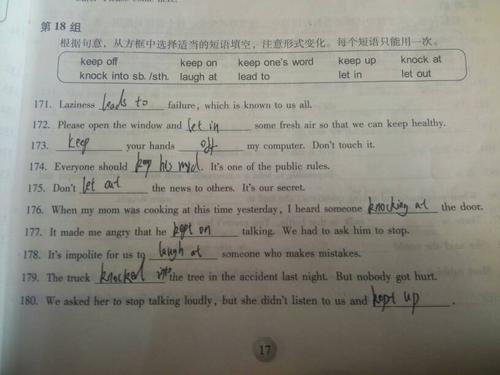 第 18 组
根据句意，从方框中选择适当的短语填空，注意形式变化。每个短语只能用一次。
keep off keep on keep one's word keep up knock at
knock into sb. /sth. laugh at lead to let in let out
171. Laziness leads to failure, which is known to us all.
172. Please open the window and let in some fresh air so that we can keep healthy.
173. keep your hands off my computer. Don't touch it.
174. Everyone should keep his word. It's one of the public rules.
175. Don't let out the news to others. It's our secret.
176. When my mom was cooking at this time yesterday, I heard someone knocking at the door.
177. It made me angry that he kept on talking. We had to ask him to stop.
178. It's impolite for us to laugh at someone who makes mistakes.
179. The truck knocked into the tree in the accident last night. But nobody got hurt.
180. We asked her to stop talking loudly, but she didn't listen to us and kept up.
17